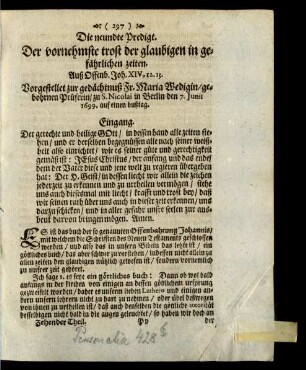 ( 297 )
Die neundte Predigt.
Der vornehmste trost der glaubigen in ge-
fährlichen zeiten.
Auß Offenb. Joh. XIV, 12. 13.
Vorgestellet zur gedächtnuß Fr. Maria Wedigin/ge-
bohrnen Prüferin/ zu S. Nicolai in Berlin den 7. Junii
1699. auf einen bußtag.
Eingang.
Der gerechte und heilige GOtt/ in dessen hand alle zeiten ste-
hen/ und er derselben begegnüssen alle nach seiner weiß-
heit also einrichtet/ wie es seiner güte und gerechtigkeit
gemäß ist: JEsus Christus/ der anfang und das ende/
dem der Vater diese und jene welt zu regieren übergeben
hat: Der H. Geist/ in dessen liecht wir allein die zeichen
jederzeit zu erkennen und zu urtheilen vermögen/ stehe
uns auch diesesmal mit liecht/ krafft und trost bey/ daß
wir seinen rath über uns auch in dieser zeit erkennen/ uns
darzu schicken/ und in aller gefahr unsre seelen zur aus-
beute darvon bringen mögen. Amen.
ES ist das buch der so genannten Offenbahrung Johannis/
mit welchem die Schrifften des Neuen Testaments geschlossen
werden/ und also das in unserer Bibel das letzte ist/ ein
göttliches buch/ das aber schwer zu verstehen/
allen zeiten den glaubigen nützlich gebolten ist/ sondern vornemlich
zu unserer zeit gehöret.
Ich sage 1. es seye ein göttliches buch: Dann ob wol bald
anfangs in der kirchen von einigen an dessen göttlichem ursprung
gezweifelt worden/ daher es unserm lieben Luthero und einigen an-
dern unsern lehrern nicht zu hart zu nehmen/ oder übel deßwegen
von ihnen zu urtheilen ist/ das auch denselben die göttliche autorität
desselbigen nicht bald in die augen geleuchtet/ so haben wir doch an
Zehender Theil. Pp der
Personalia 428